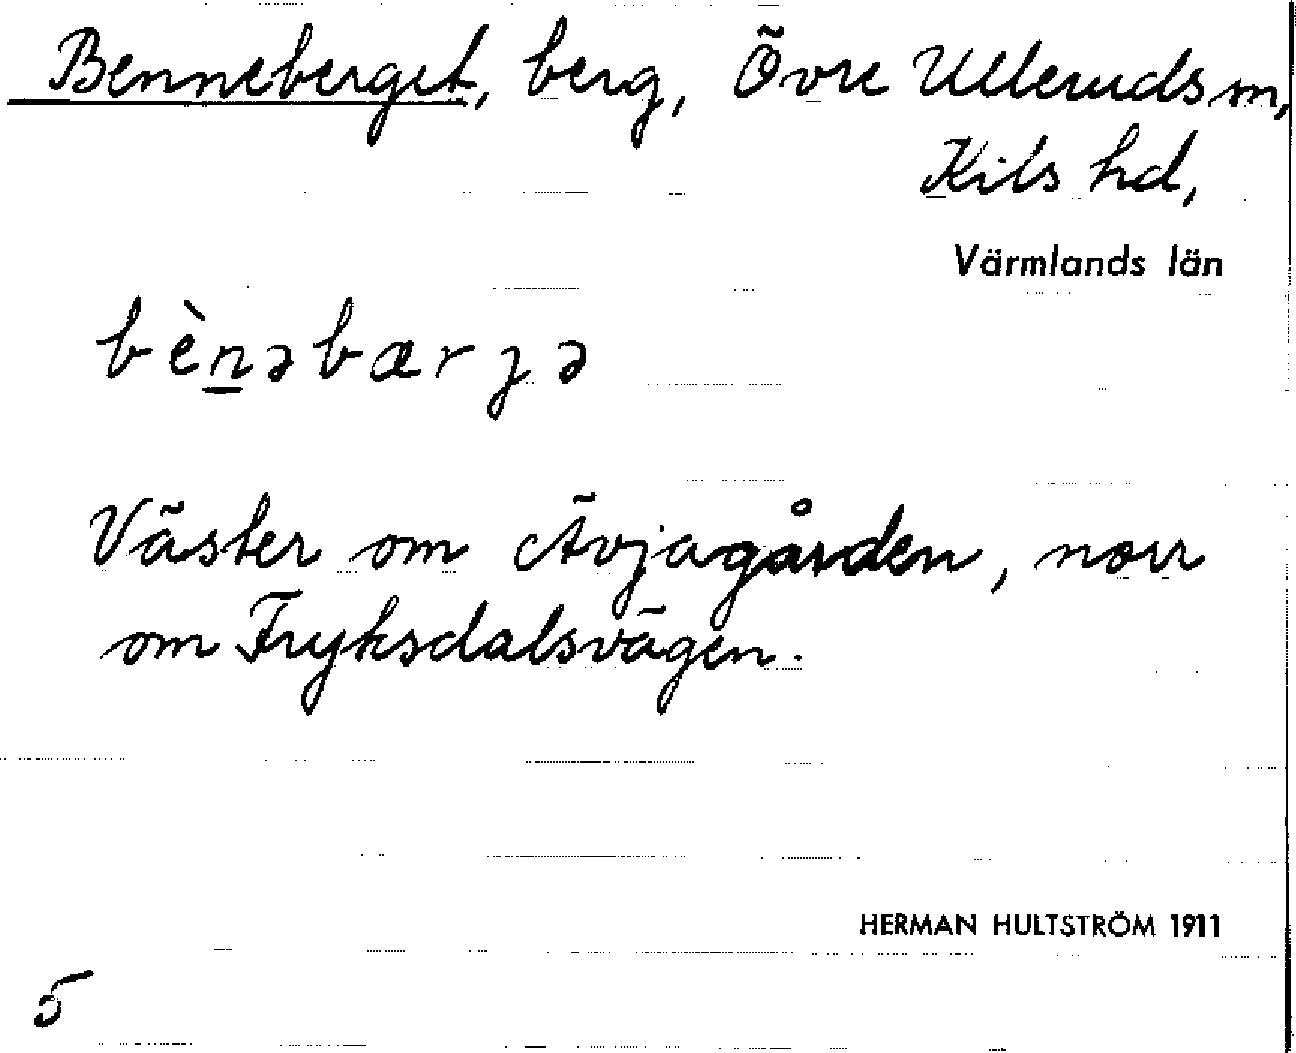 Benneberget, berg, Övre Ulleruds sn,
Kils hd,
Värmlands län
bènəbærjə
Väster om Ävjagården, norr
om Fryksdalsvägen.
HERMAN HULTSTRÖM 1911
5